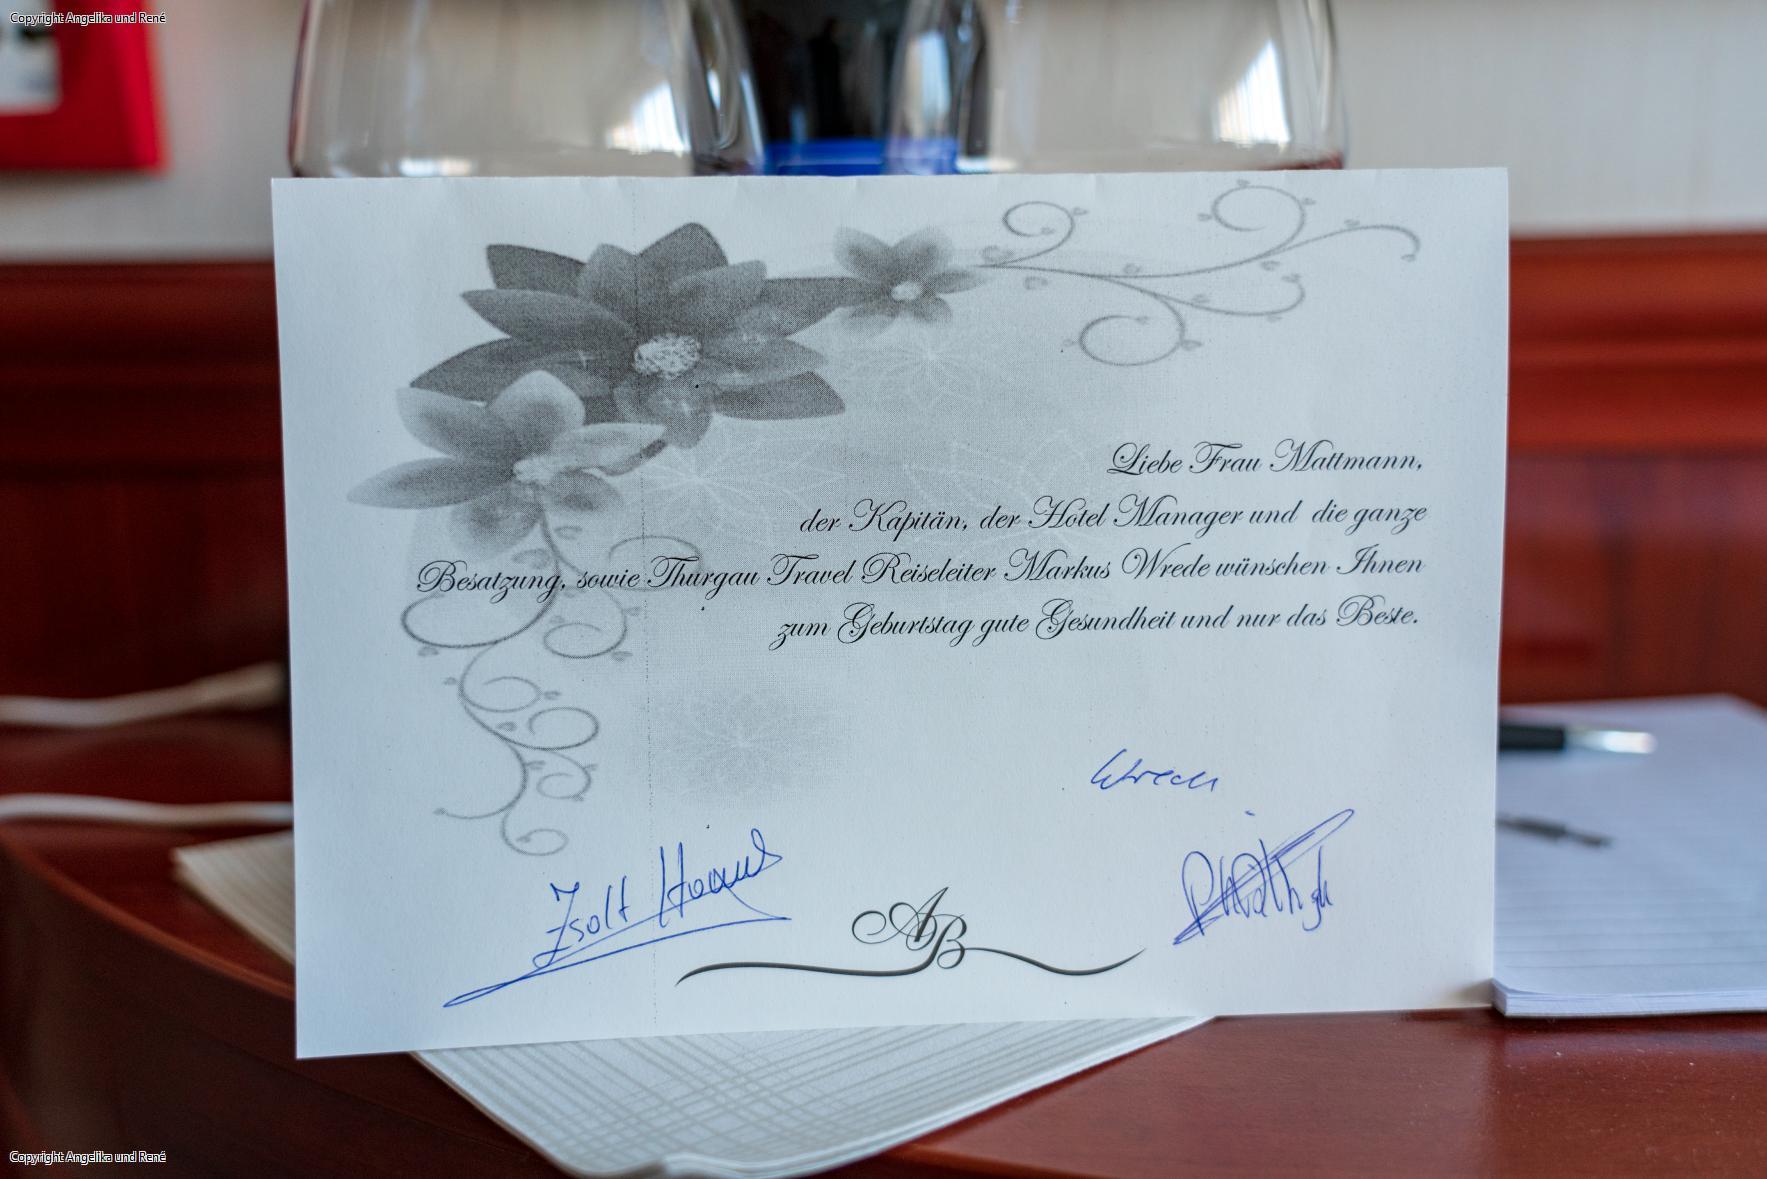 Copyright Angelika und René
Liebe Frau Mattmann,
der Kapitän, der Hotel Manager und die ganze
Besatzung, sowie Thurgau Travel Reiseleiter Markus Wrede wünschen Ihnen
zum Geburtstag gute Gesundheit und nur das Beste.
Zsolt
AB
Copyright Angelika und René